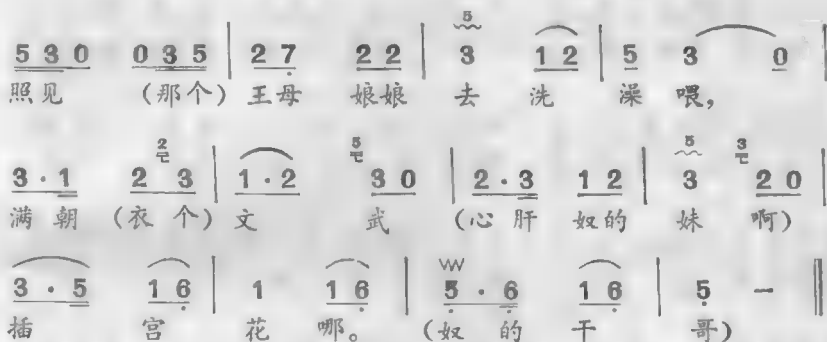 5
5 3 0 0 3 5 | 2 7 2 2 | 3 1 2 | 5 3 0 |
照见 (那个) 王母 娘娘 去 洗 澡 喂,
2 5 5 3
3 · 1 2 3 | 1 · 2 3 0 | 2 · 3 1 2 | 3 2 0 |
满朝 (衣个) 文 武 (心肝 奴的 妹 啊)
3 · 5 1 6 | 1 1 6 | 5 · 6 1 6 | 5 — ‖
插 宫 花 哪。 (奴 的 干 哥)